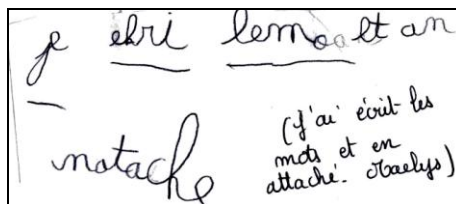 je ehri lemo et an
natache
(J'ai écrit les
mots et en
attaché. Maelys)